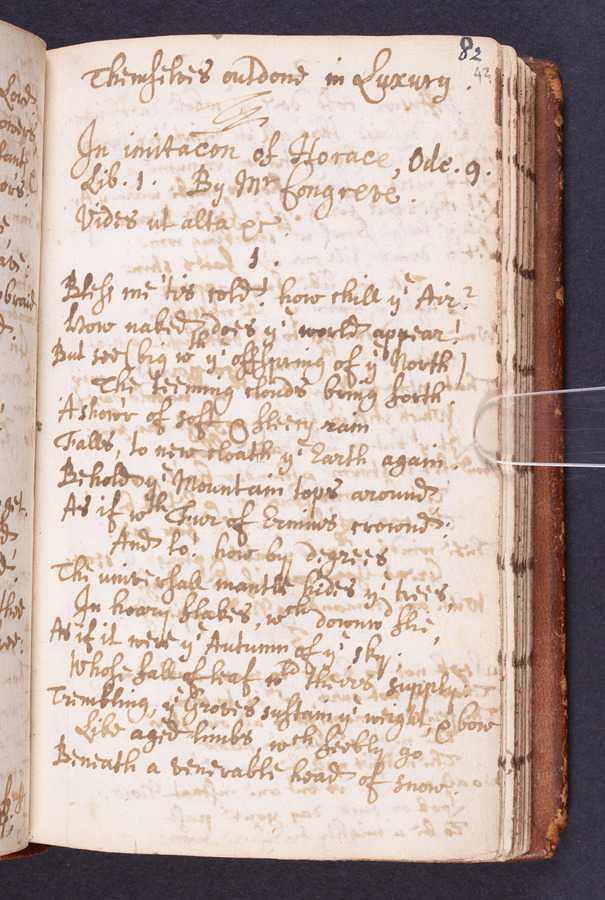 82
42
Themselves outdone in Luxury.
In imitacõn of Horace, Ode. 9.
Lib. 1. By Mr Congreve.
Vides ut alta &c.
1.
Bless me 'tis cold! how chill ye Air?
How naked does ye world appear!
But see (big wth ye offspring of ye North)
The teeming clouds bring forth.
A show'r of soft & fleecy rain
Falls, to new cloath ye Earth again.
Behold ye Mountain tops around
As if wth Fur of Ermins crownd:
And lo! how by degrees
The universall mantle hides ye trees,
In hoary flakes, wch downw flie,
As if it were ye Autumn of ye sky.
Whose fall of leaf wd theirs supply:
Trembling, ye Groves sustain ye weight, & bow
Like aged limbs, wch feebly go
Beneath a venerable head of snow.